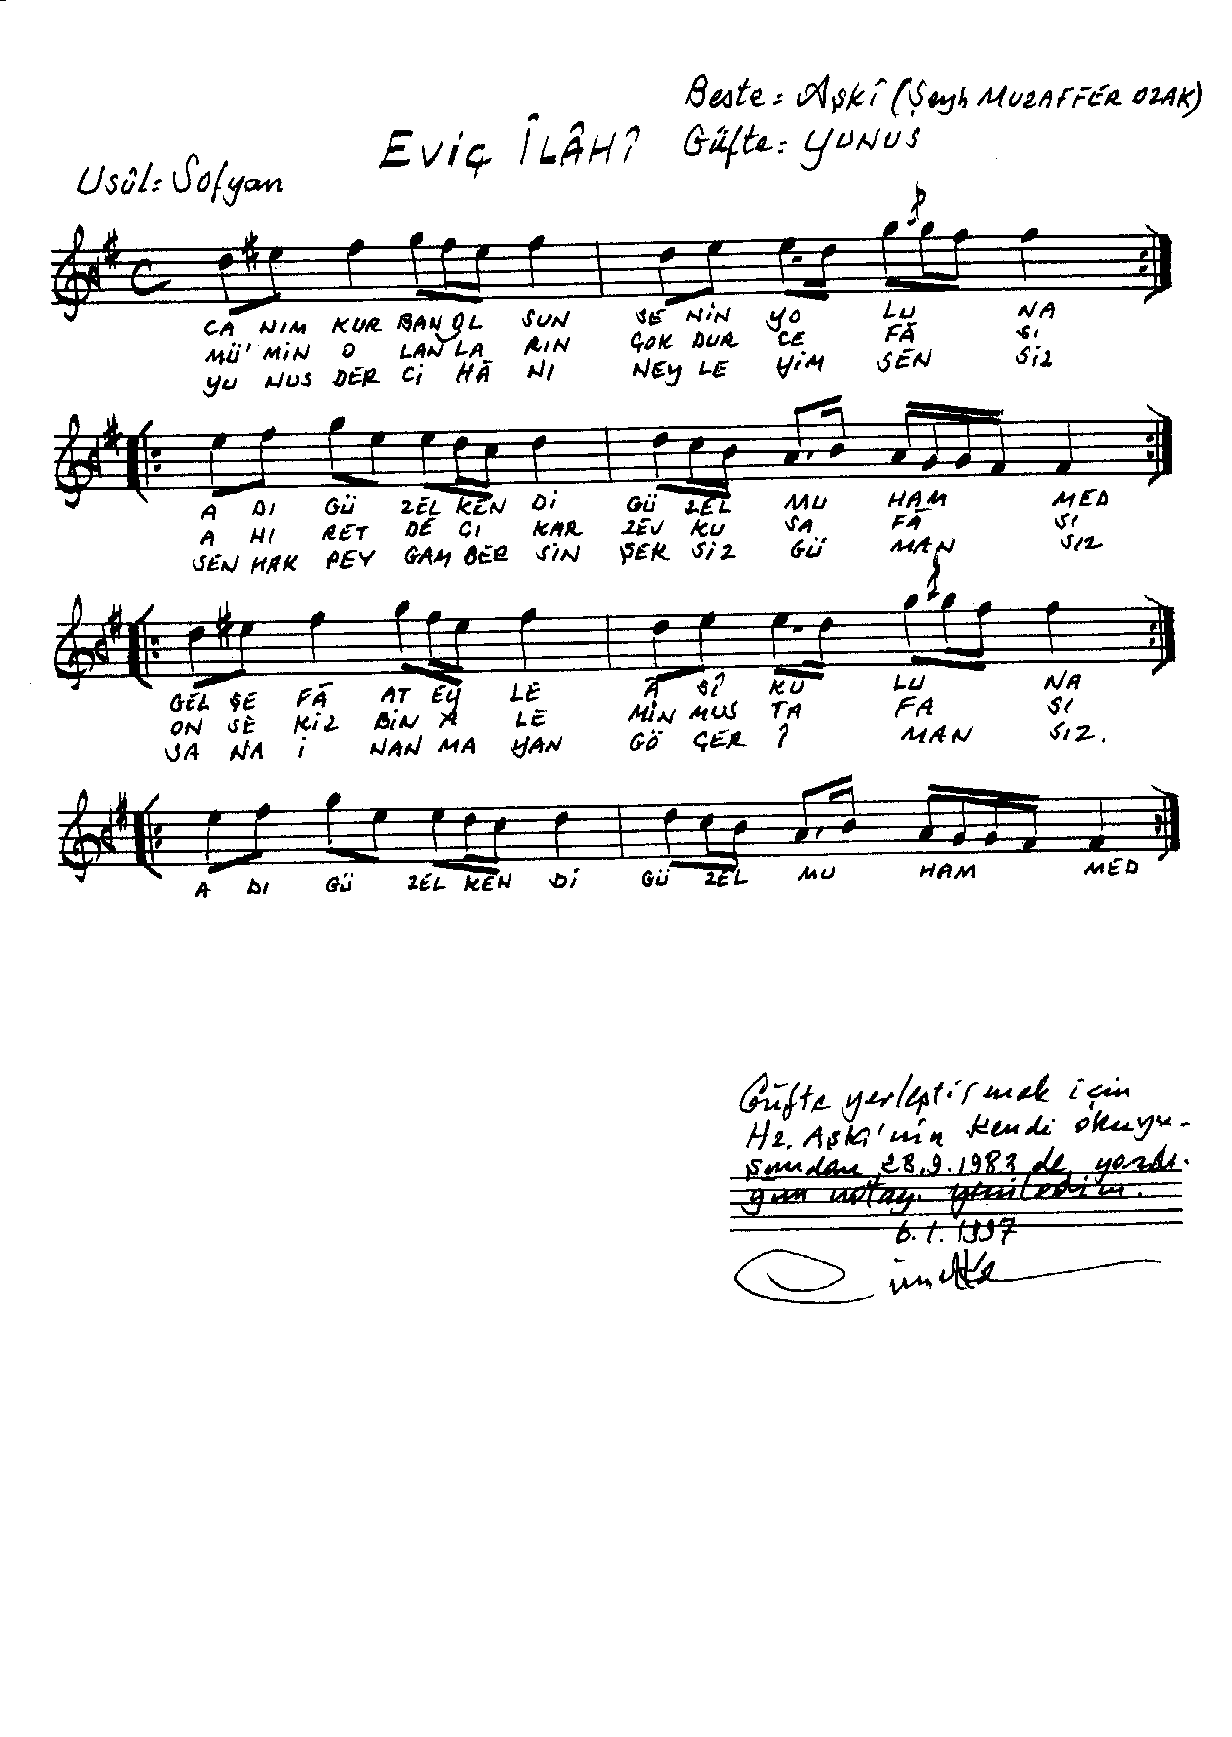 Beste: Aşkî (Şeyh MUZAFFER OZAK)
EVİÇ ÎLÂHÎ Güfte: YUNUS
Usûl: Sofyan
CA NIM KUR BAN OL SUN SE NİN YO LU NA
MÜ' MİN O LAN LA RIN ÇOK DUR CE FÂ SI
YU NUS DER Cİ HÂ NI NEY LE YİM SEN SİZ
A DI GÜ ZEL KEN Dİ GÜ ZEL MU HAM MED
A HI RET DE ÇI KAR ZEV KU SA FÂ SI
SEN HAK PEY GAM BER SİN ŞEK SİZ GÜ MAN SIZ
GEL ŞE FÂ AT EY LE Â SÎ KU LU NA
ON SE KİZ BİN Â LE MİN MUS TA FA SI
SA NA İ NAN MA YAN GÖ ÇER Î MAN SIZ.
A DI GÜ ZEL KEN Dİ GÜ ZEL MU HAM MED
Güfte yerleştirmek için
Hz. Aşkî'nin kendi okuyu-
şundan 28.9.1983 de yazdı-
ğım notayı yeniledim.
6.1.1997